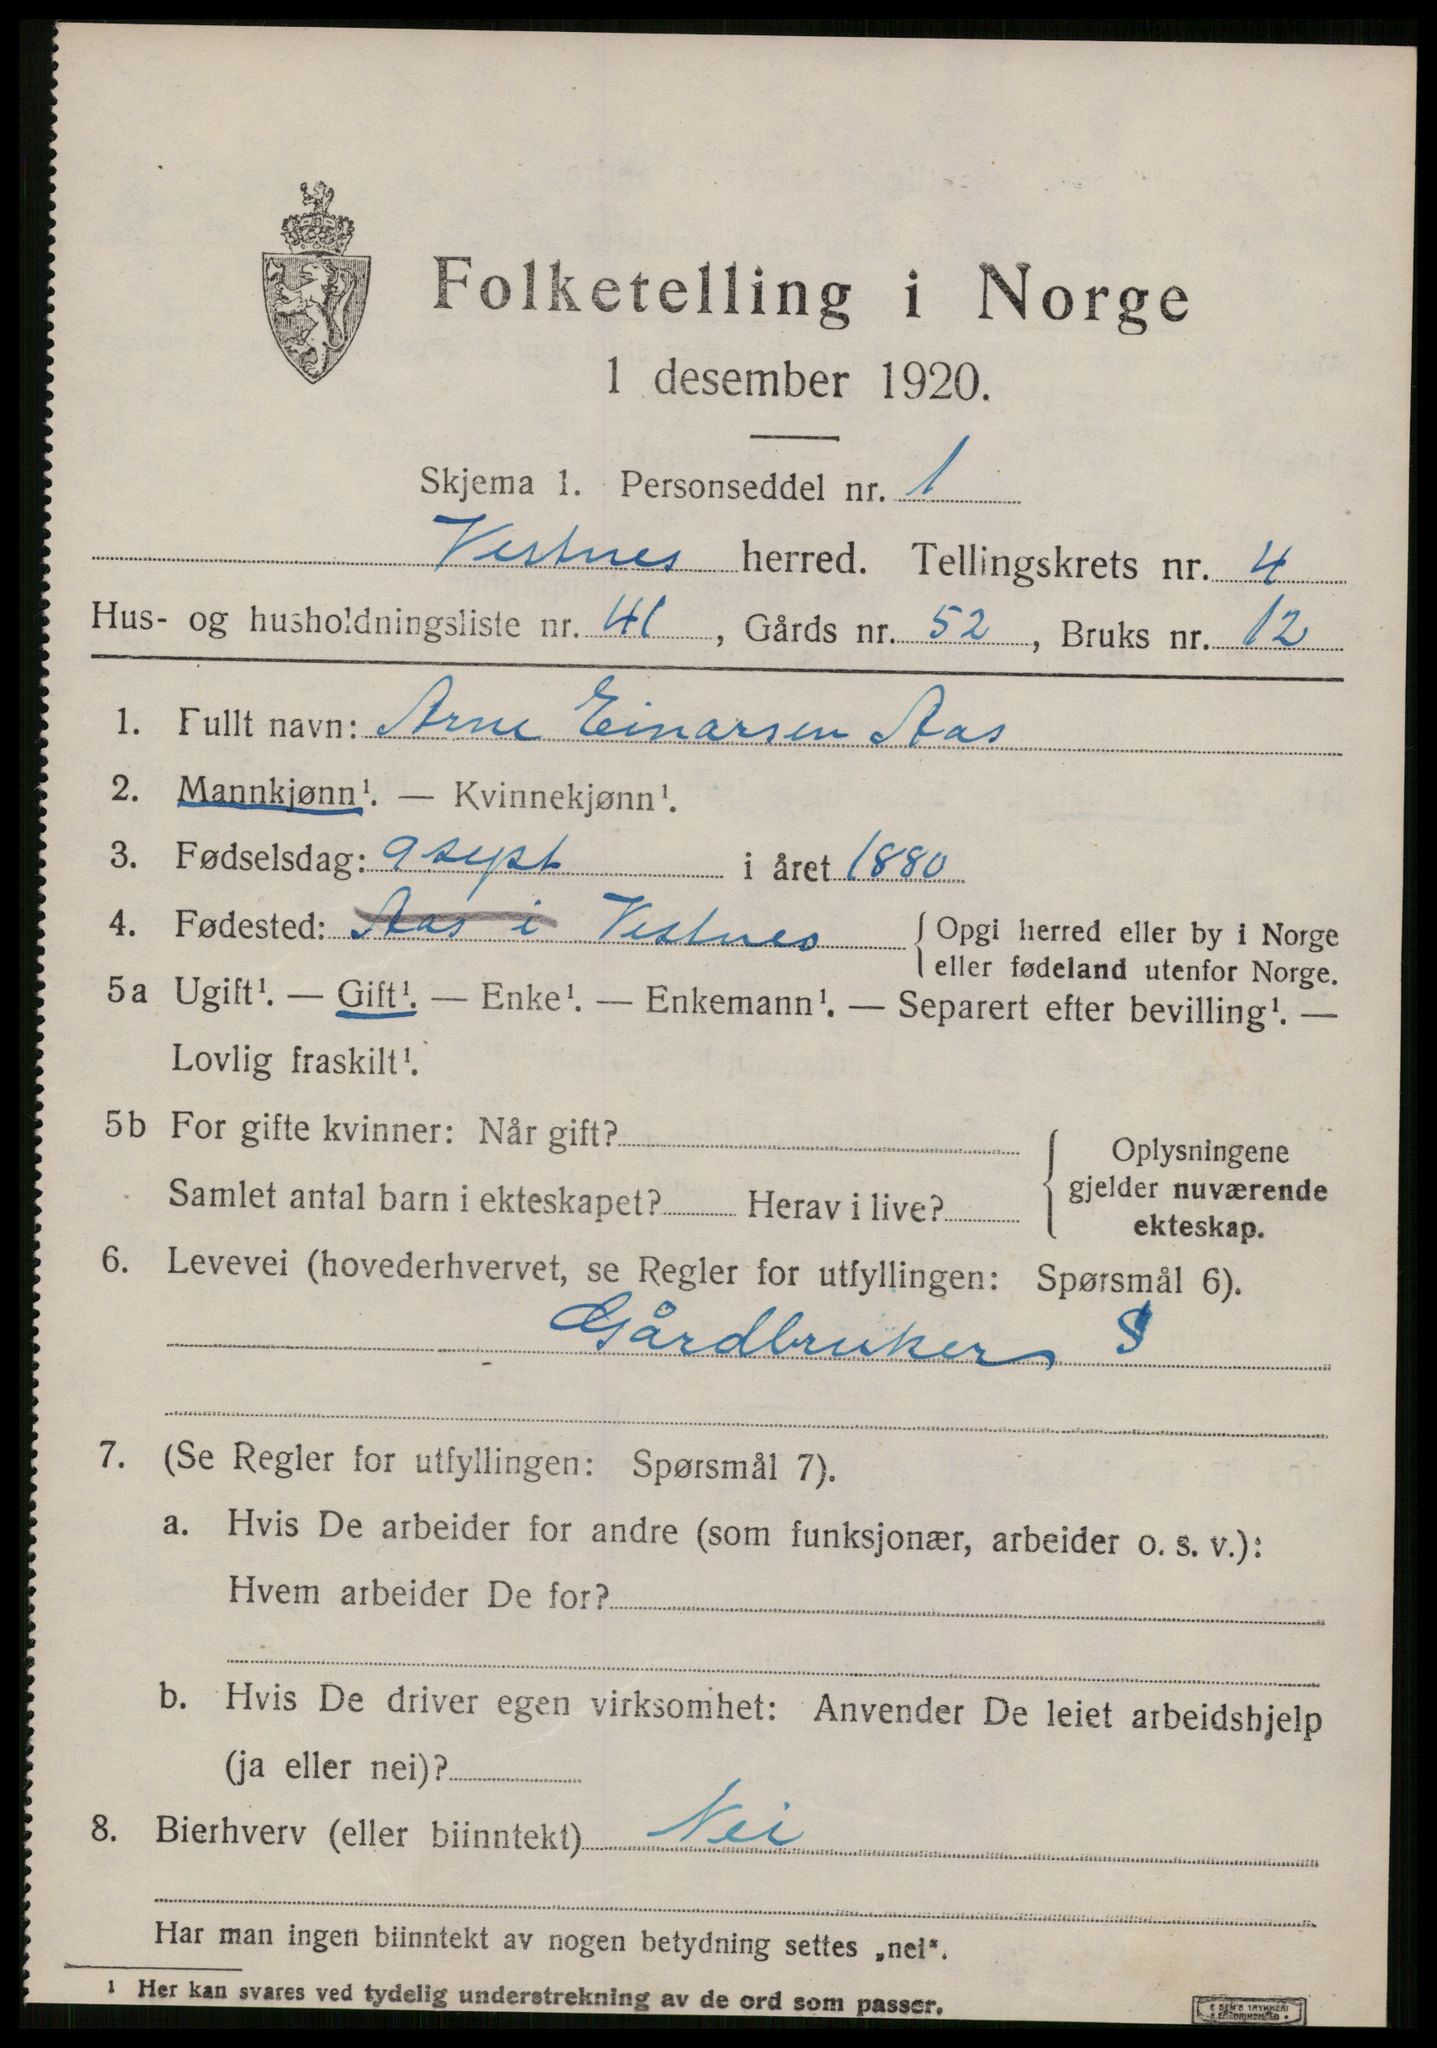 Folketelling i Norge
1 desember 1920.
Skjema 1. Personseddel nr. 1
Vestnes herred. Tellingskrets nr. 4
Hus- og husholdningsliste nr. 41, Gårds nr. 52, Bruks nr. 12
1. Fullt navn: Arne Einarsen Aas
2. Mannkjønn¹. — Kvinnekjønn¹.
3. Fødselsdag: 9 sept i året 1880
4. Fødested: Aas i Vestnes { Opgi herred eller by i Norge
eller fødeland utenfor Norge.
5a Ugift¹. — Gift¹. — Enke¹. — Enkemann¹. — Separert efter bevilling¹. —
Lovlig fraskilt¹.
5b For gifte kvinner: Når gift?
Samlet antal barn i ekteskapet? Herav i live?
Oplysningene
gjelder nuværende
ekteskap.
6. Levevei (hovederhvervet, se Regler for utfyllingen: Spørsmål 6).
Gårdbruker S
7. (Se Regler for utfyllingen: Spørsmål 7).
a. Hvis De arbeider for andre (som funksjonær, arbeider o. s. v.):
Hvem arbeider De for?
b. Hvis De driver egen virksomhet: Anvender De leiet arbeidshjelp
(ja eller nei)?
8. Bierhverv (eller biinntekt) Nei
Har man ingen biinntekt av nogen betydning settes „nei“.
¹ Her kan svares ved tydelig understrekning av de ord som passer.